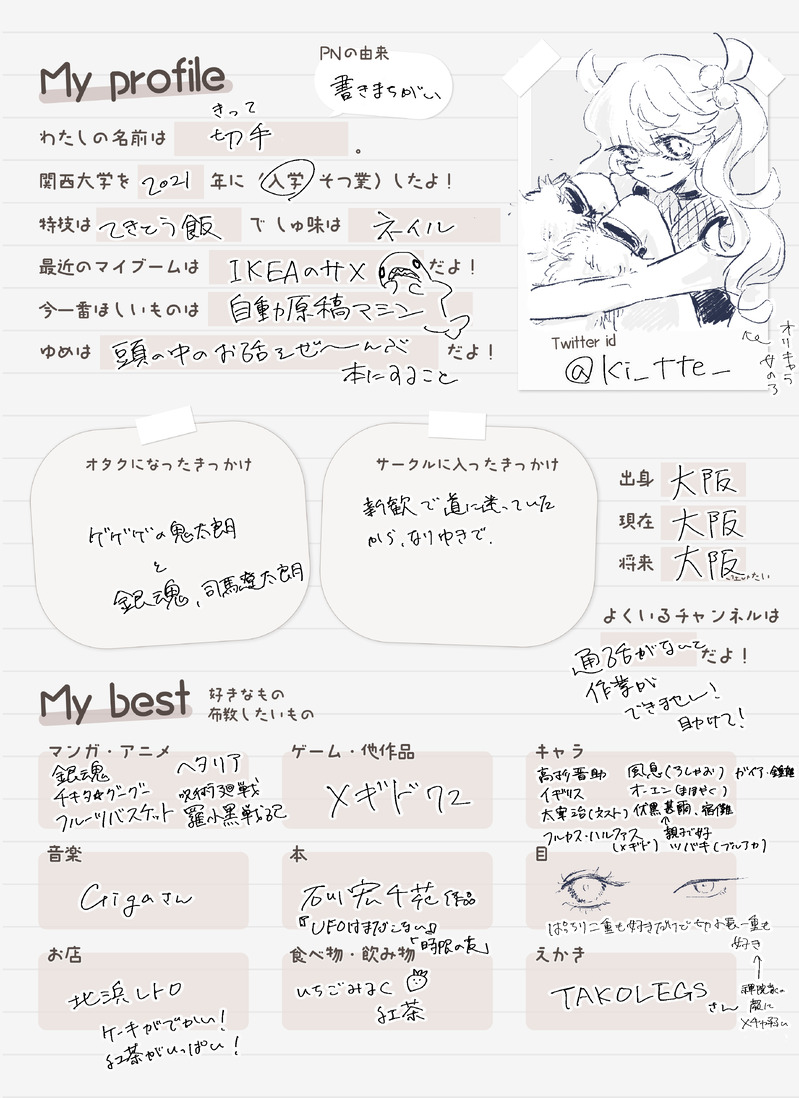 My profile
PNの由来
書きまちがい
きって
わたしの名前は 切手 。
関西大学を 2021 年に (入学 そつ業) したよ!
特技は てきとう飯 で しゅ味は ネイル
最近のマイブームは IKEAのサメ だよ!
今一番ほしいものは 自動原稿マシン
ゆめは 頭の中のお話をぜ〜〜んぶ だよ!
本にすること
Twitter id
@ki_tte_
オリキャラ
オタクになったきっかけ
ゲゲゲの鬼太朗
と
銀魂、司馬遼太朗
サークルに入ったきっかけ
新歓で道に迷っていた
から、なりゆきで.
出身 大阪
現在 大阪
将来 大阪
よくいるチャンネルは
通話がないと だよ!
作業が
できません!
助けて!
My best
好きなもの
布教したいもの
マンガ・アニメ
銀魂 ヘタリア
チキタ☆グーグー 呪術廻戦
フルーツバスケット 羅小黒戦記
ゲーム・他作品
メギド72
キャラ
高杉晋助 風息(ろしゃお) ガイア・鍾離
イギリス オーエン(まほやく)
太宰治(文スト) 伏黒甚爾、宿儺
フルカス・ハルファス 親子で好
(メギド) ツバキ(ブルアカ)
音楽
Gigaさん
本
石川宏千花作品
『UFOはまだこない』
「時限の友」
目
ぱっちり二重も好きだけど切れ長一重も
好き
お店
北浜レトロ
ケーキがでかい!
紅茶がいっぱい!
食べ物・飲み物
いちごみるく
紅茶
えかき
TAKOLEGSさん
禪院家の
顔に